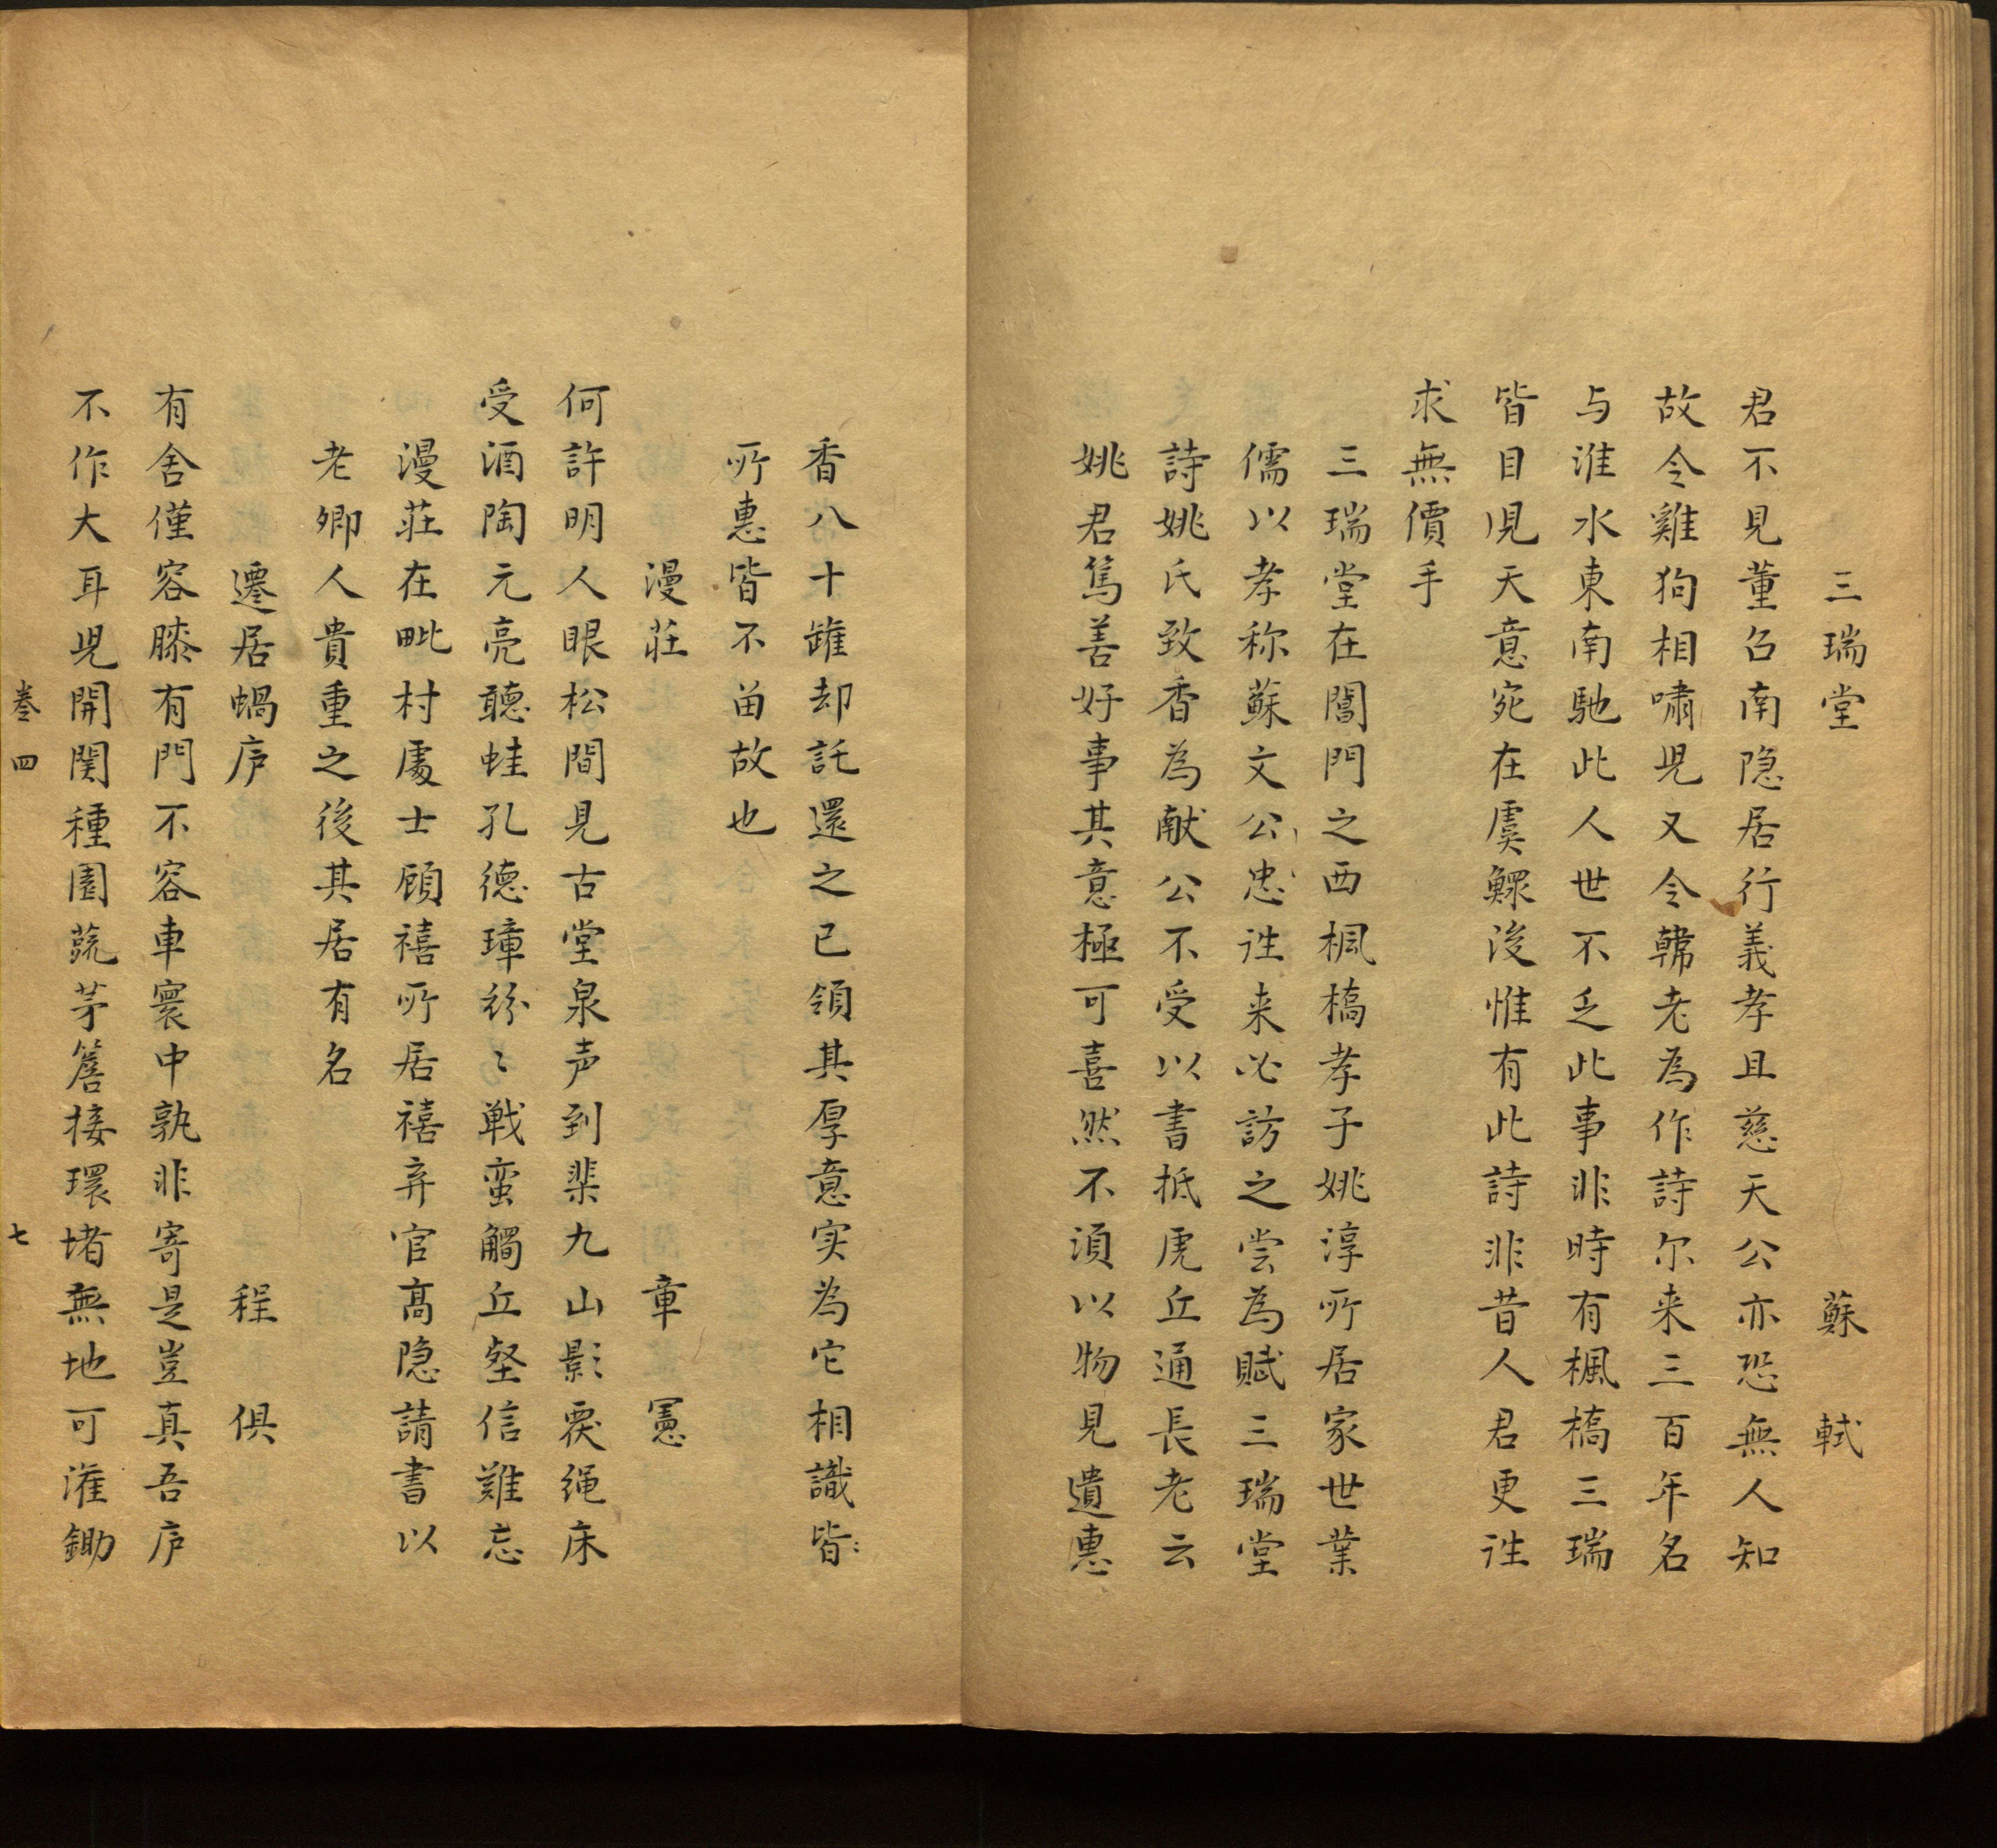 三瑞堂 蘇軾
君不見董召南隐居行義孝且慈天公亦恐無人知
故令雞狗相啸児又令韓老為作詩尔来三百年名
与淮水東南馳此人世不乏此事非時有楓橋三瑞
皆目見天意宛在虞鰥後惟有此詩非昔人君更往
求無價手
三瑞堂在閶門之西楓橋孝子姚淳所居家世業
儒以孝称蘇文公忠往来必訪之尝為賦三瑞堂
詩姚氏致香為献公不受以書抵虎丘通長老云
姚君篤善好事其意極可喜然不須以物見遺惠
香八十雖却託還之已領其厚意实為它相識皆
所惠皆不畄故也
漫莊 章憲
何許明人眼松間見古堂泉声到棐九山影覆绳床
受酒陶元亮聽蛙孔德璋紛〻戦蛮觸丘壑信難忘
漫莊在毗村處士顧禧所居禧弃官髙隐請書以
老卿人貴重之後其居有名
遷居蝸庐 程俱
有舍僅容膝有門不容車寰中孰非寄是豈真吾庐
不作大耳児開関種園蔬茅簷接環堵無地可潅鋤
巻四 七